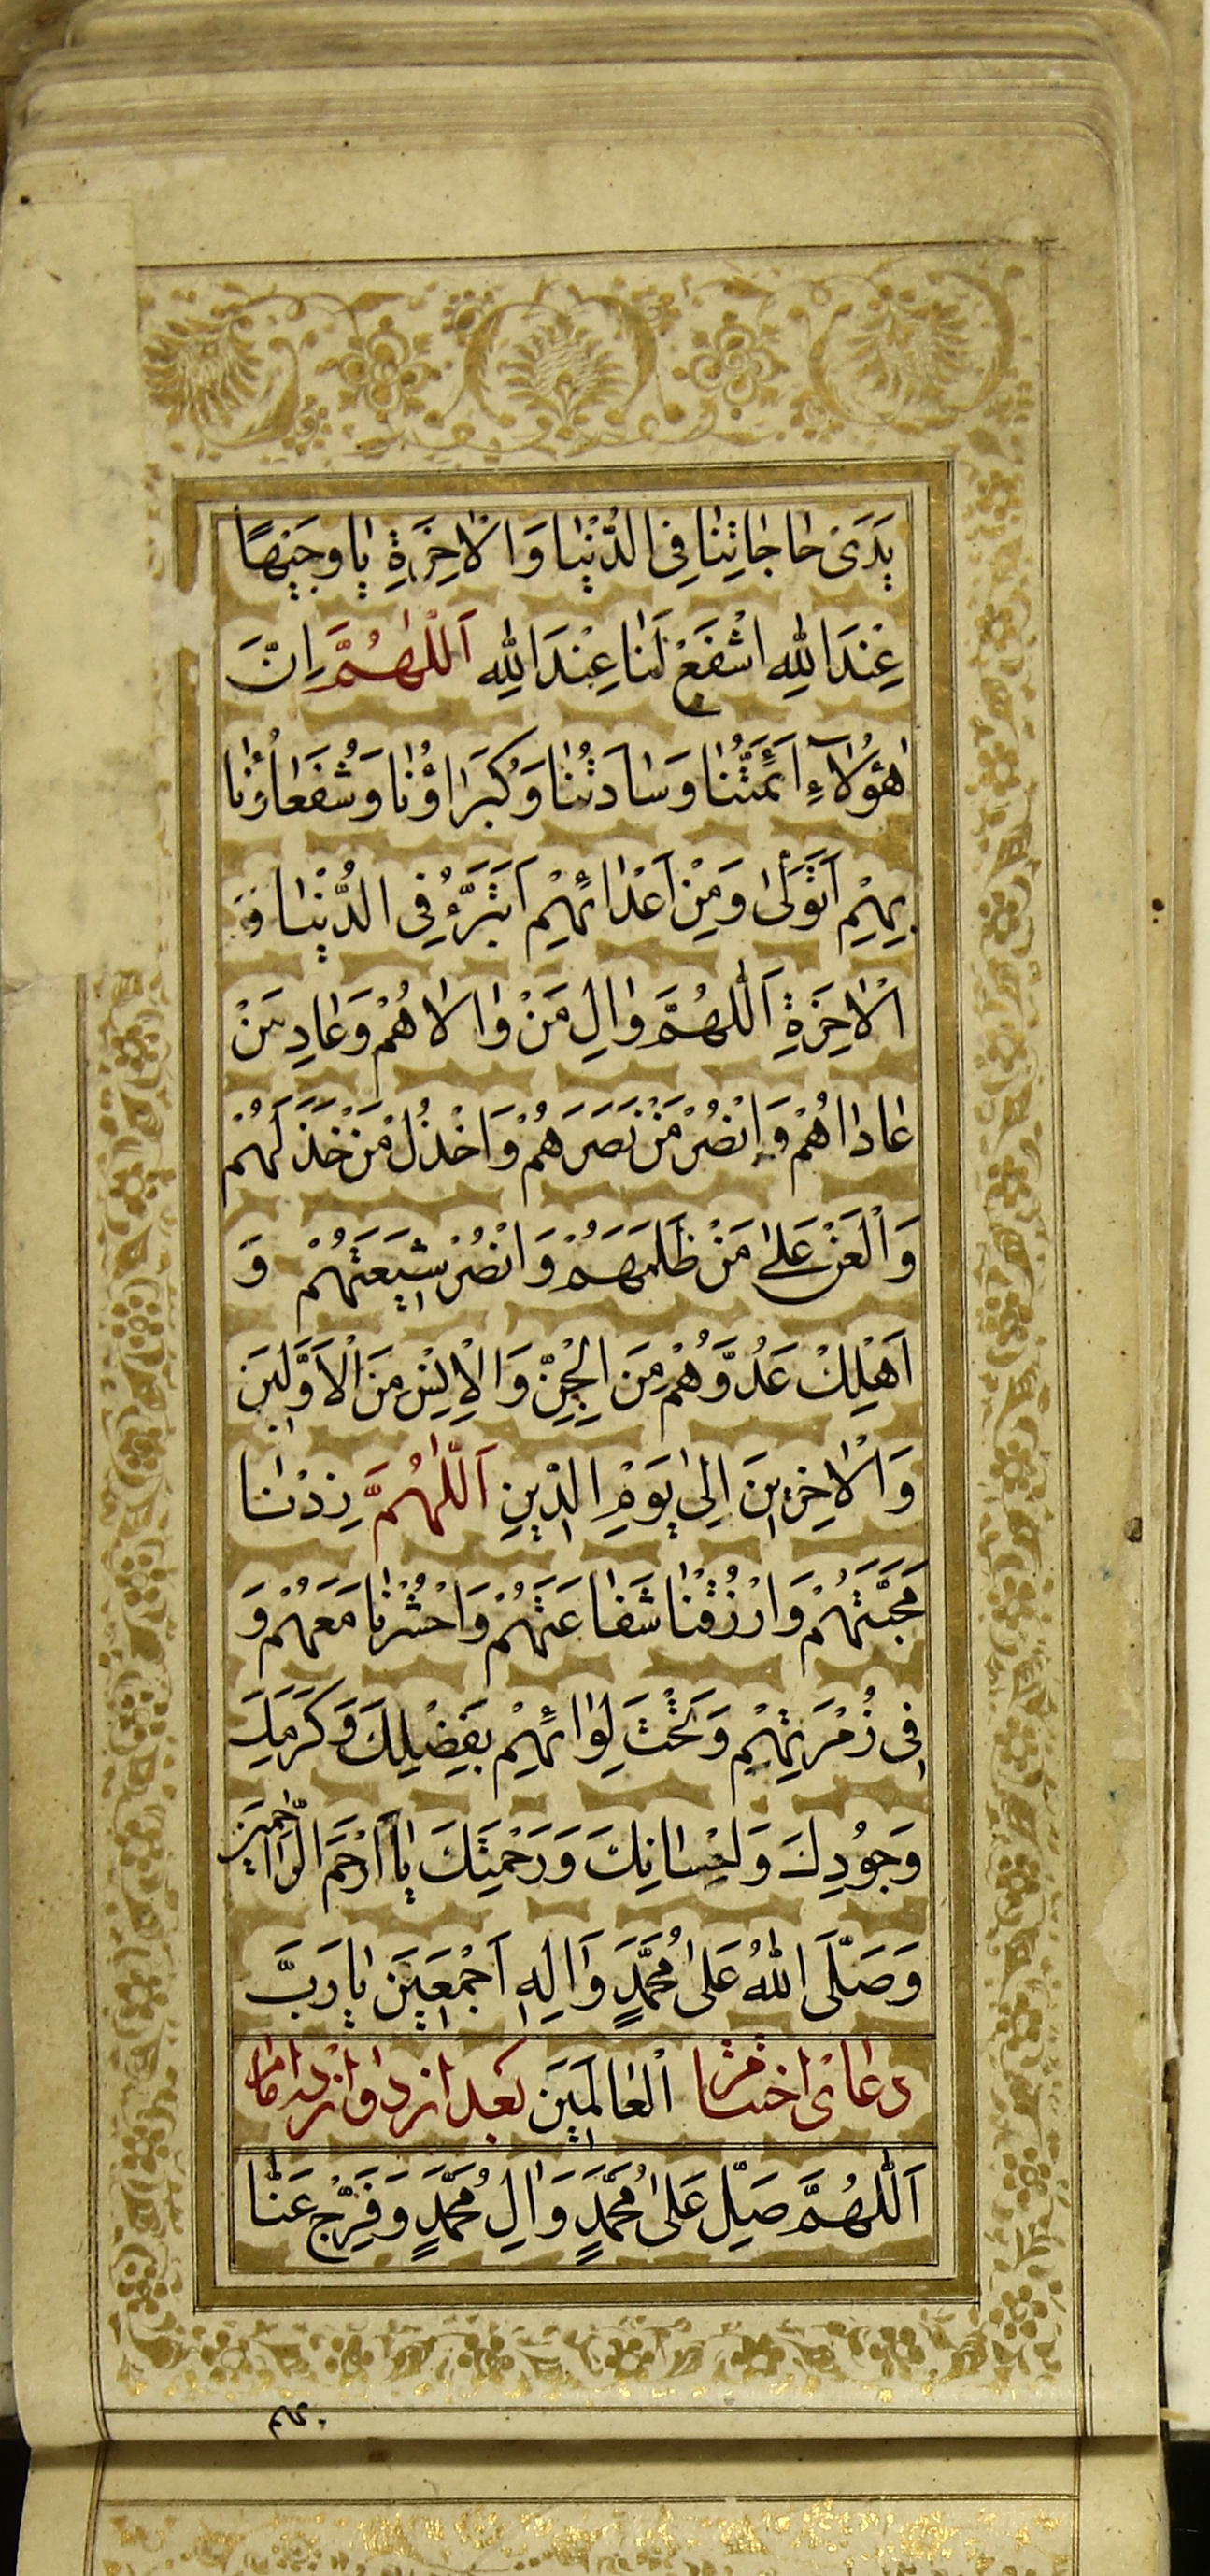 يَدَىْ حَاجَاتِنَا فِى الدُّنْيَا وَالْاٰخِرَةِ يَا وَجِيْهًا
عِنْدَ اللّٰهِ اشْفَعْ لَنَا عِنْدَ اللّٰهِ اَللّٰهُمَّ اِنَّ
هٰؤُلَآءِ اَئِمَّتُنَا وَسَادَتُنَا وَكُبَرَاؤُنَا وَشُفَعَاؤُنَا
بِهِمْ اَتَوَلّٰى وَمِنْ اَعْدَائِهِمْ اَتَبَرَّءُ فِى الدُّنْيَا وَ
الْاٰخِرَةِ اَللّٰهُمَّ وَالِ مَنْ وَالَاهُمْ وَعَادِ مَنْ
عَادَاهُمْ وَانْصُرْ مَنْ نَصَرَهُمْ وَاخْذُلْ مَنْ خَذَلَهُمْ
وَالْعَنْ عَلٰى مَنْ ظَلَمَهُمْ وَانْصُرْ شِيْعَتَهُمْ وَ
اَهْلِكْ عَدُوَّهُمْ مِنَ الْجِنِّ وَالْاِنْسِ مِنَ الْاَوَّلِيْنَ
وَالْاٰخِرِيْنَ اِلٰى يَوْمِ الدِّيْنِ اَللّٰهُمَّ زِدْنَا
مَحَبَّتَهُمْ وَارْزُقْنَا شَفَاعَتَهُمْ وَاحْشُرْنَا مَعَهُمْ وَ
فِى زُمْرَتِهِمْ وَتَحْتَ لِوَائِهِمْ بِفَضْلِكَ وَكَرَمِكَ
وَجُوْدِكَ وَاِحْسَانِكَ وَرَحْمَتِكَ يَا اَرْحَمَ الرَّاحِمِيْنَ
وَصَلَّى اللّٰهُ عَلٰى مُحَمَّدٍ وَاٰلِهِ اَجْمَعِيْنَ يَا رَبَّ
الْعَالَمِيْنَ دعاى اختتام بعد از دوازده امام
اَللّٰهُمَّ صَلِّ عَلٰى مُحَمَّدٍ وَاٰلِ مُحَمَّدٍ وَفَرِّجْ عَنَّا